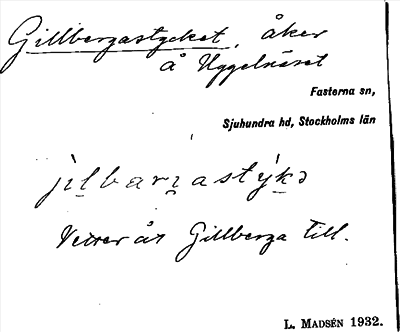 Gillbergastycket, åker
å Uggelnäset
Fasterna sn,
Sjuhundra hd, Stockholms län
åt Gillberga till.
L. MADSÉN 1932.